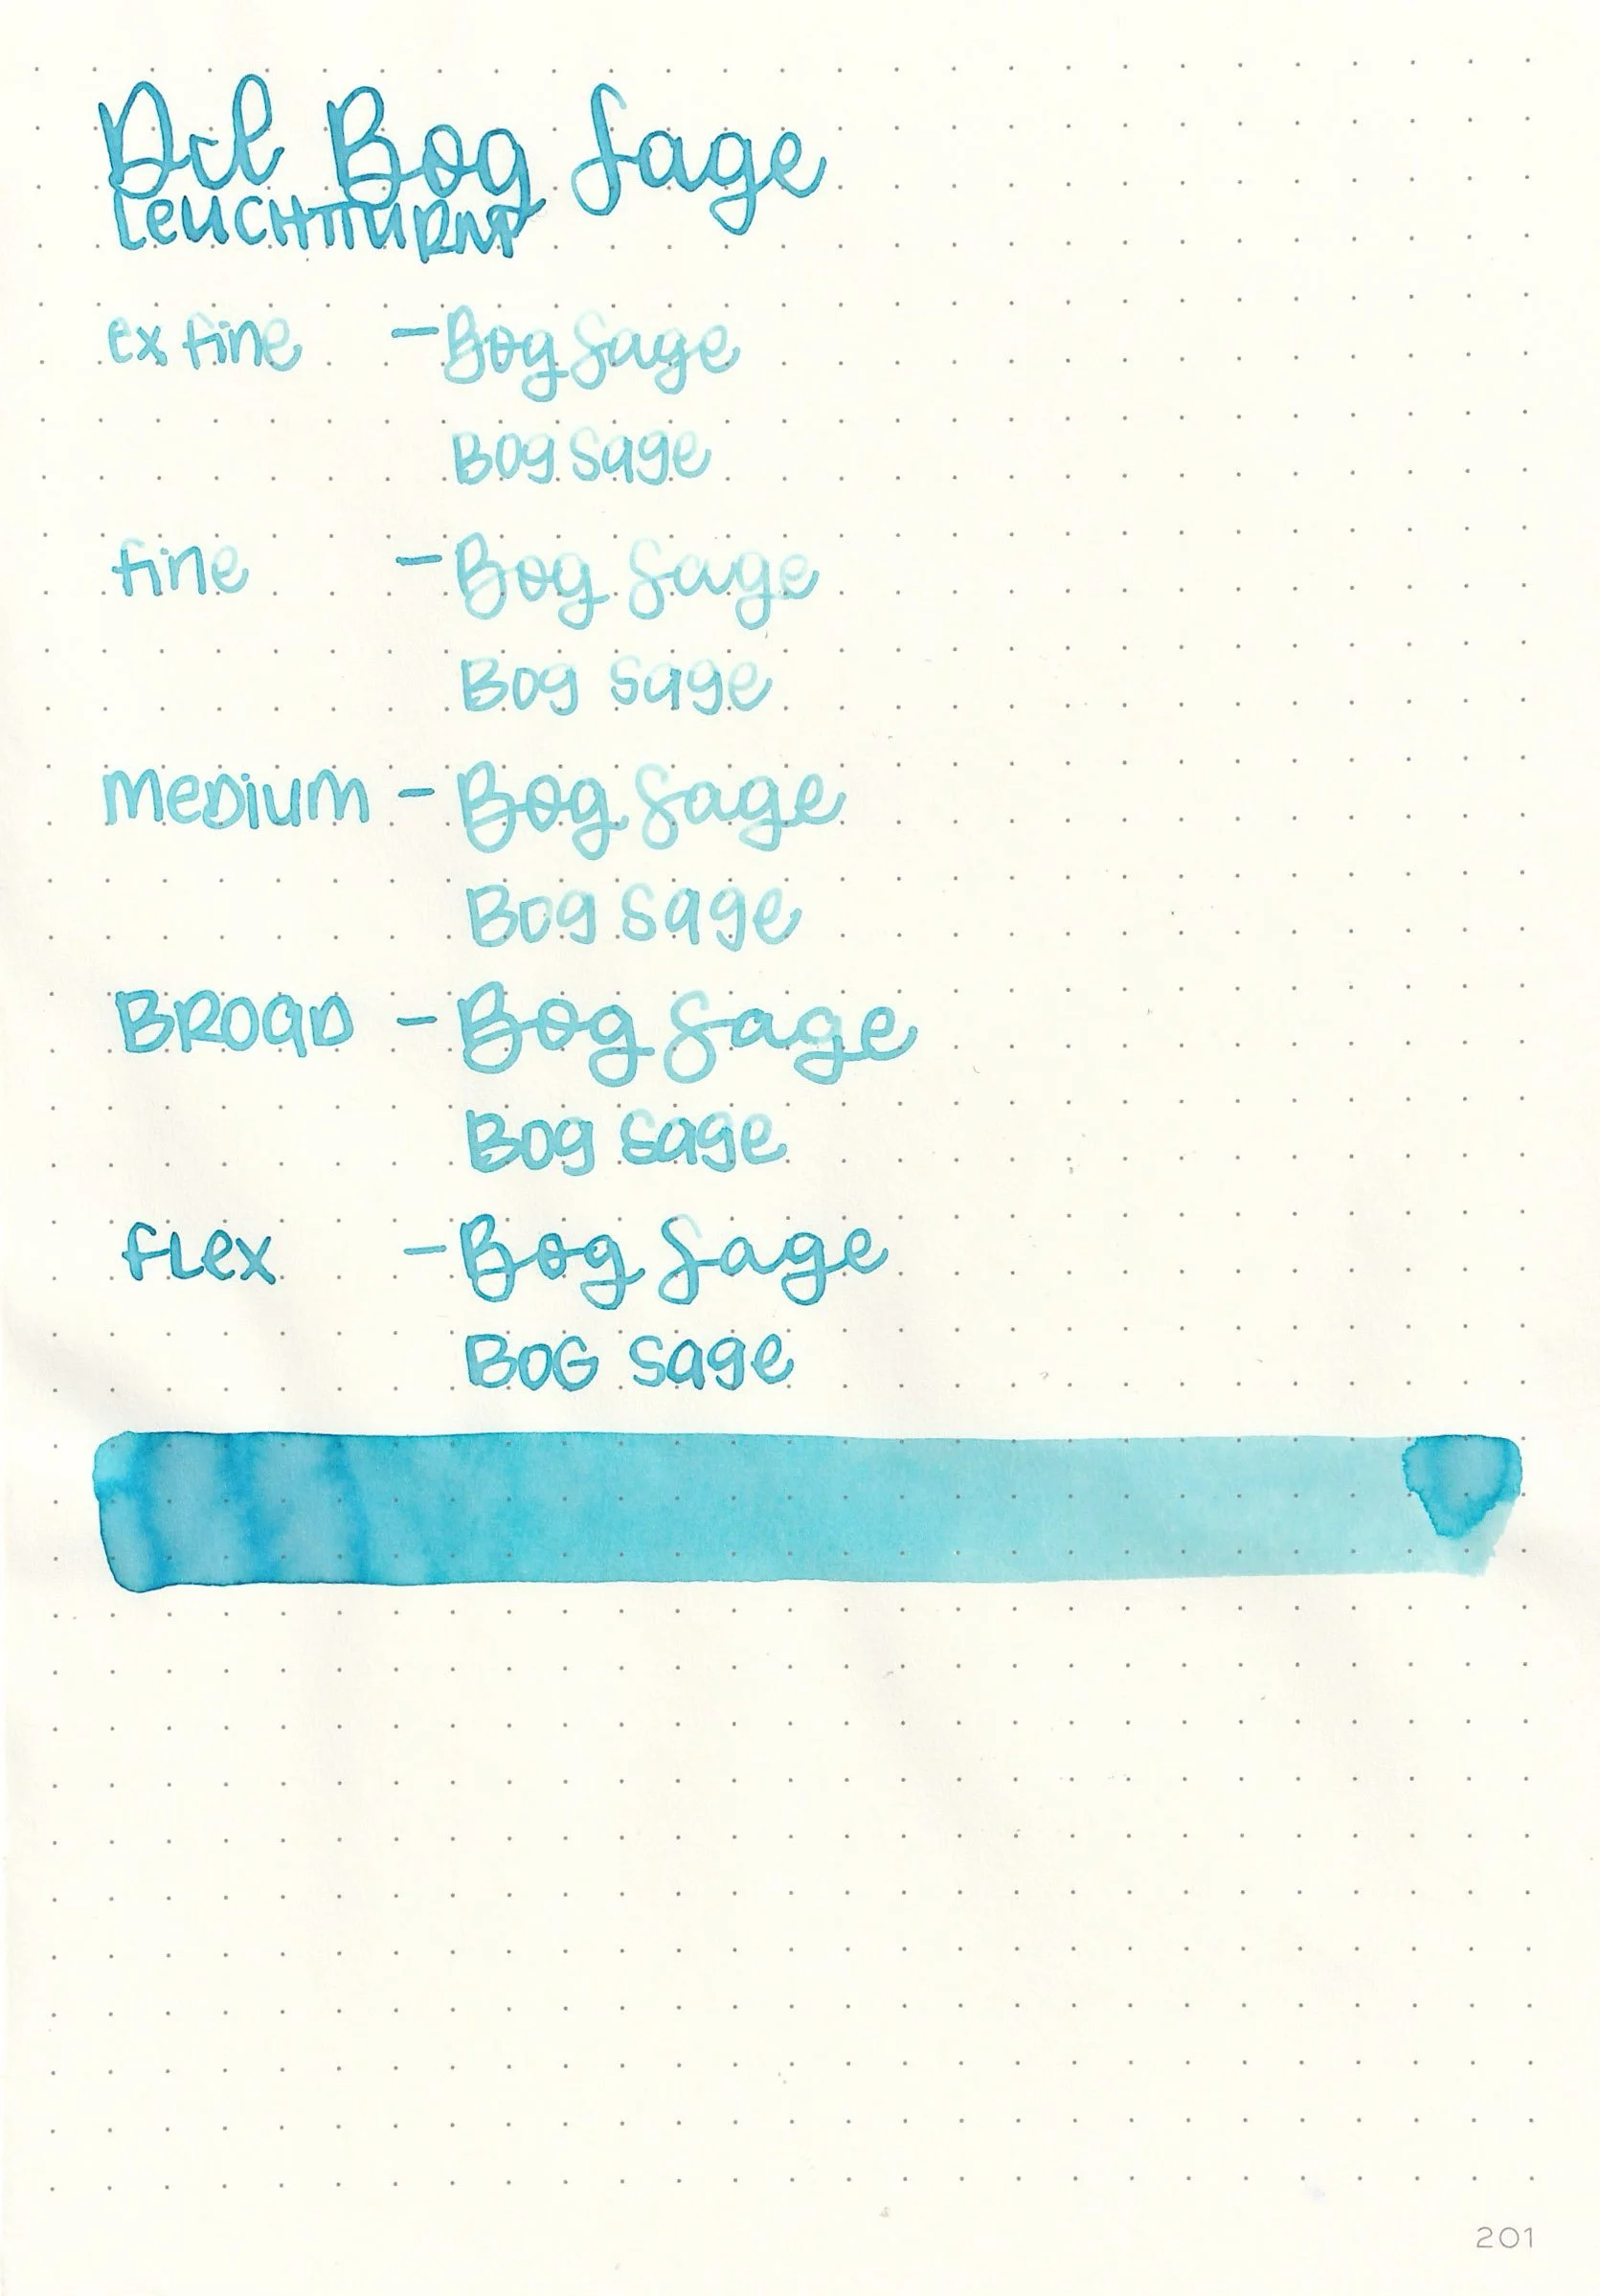 Dcl Bog Sage
LEUCHTTURM
ex fine - Bog Sage
Bog Sage
fine - Bog Sage
Bog Sage
Medium - Bog Sage
Bog Sage
BROAD - Bog Sage
Bog Sage
FLex - Bog Sage
BOG Sage
201